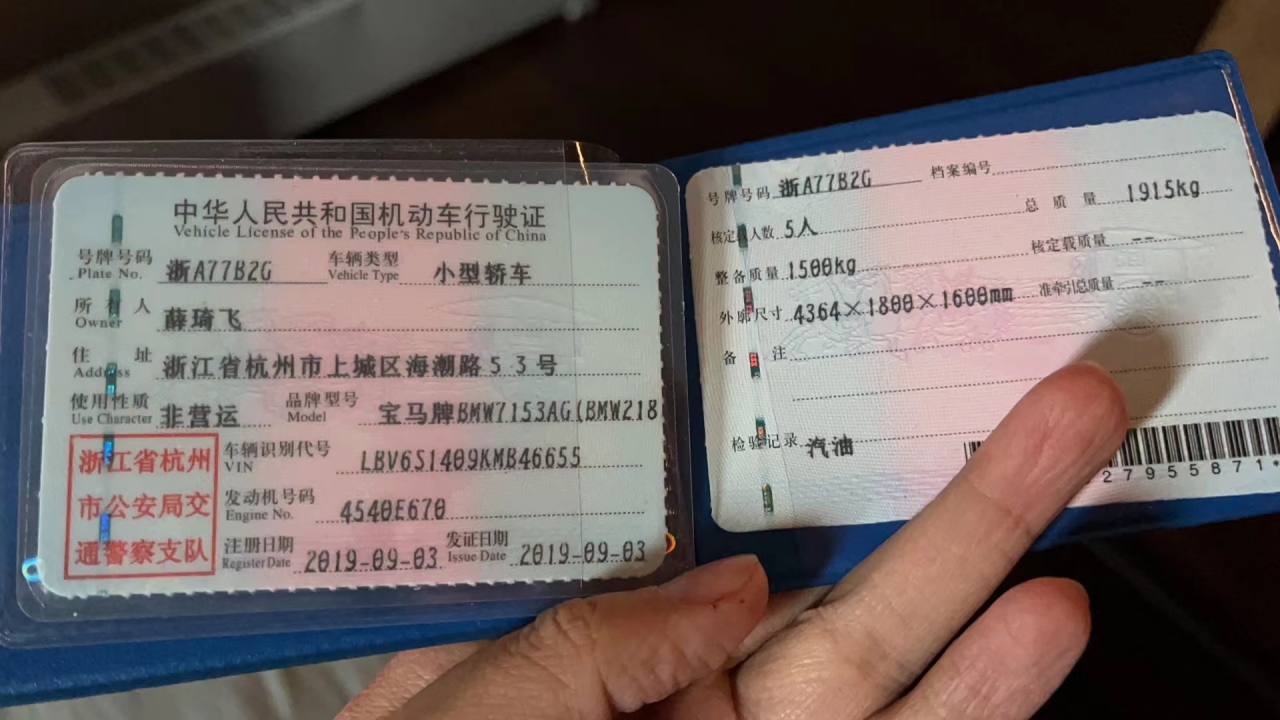 中华人民共和国机动车行驶证
Vehicle License of the People's Republic of China
号牌号码 Plate No. 浙A77B2G 车辆类型 Vehicle Type 小型轿车
所有人 Owner 薛琦飞
住址 Address 浙江省杭州市上城区海潮路53号
使用性质 Use Character 非营运 品牌型号 Model 宝马牌BMW7153AG(BMW218
浙江省杭州
市公安局交
通警察支队
车辆识别代号 VIN LBV6S1409KMB46655
发动机号码 Engine No. 4540E670
注册日期 Register Date 2019-09-03 发证日期 Issue Date 2019-09-03
号牌号码 浙A77B2G 档案编号
核定人数 5人 总质量 1915kg
整备质量 1500kg 核定载质量 --
外廓尺寸 4364×1800×1600mm 准牵引总质量 --
备注
检验记录 汽油
27955871*